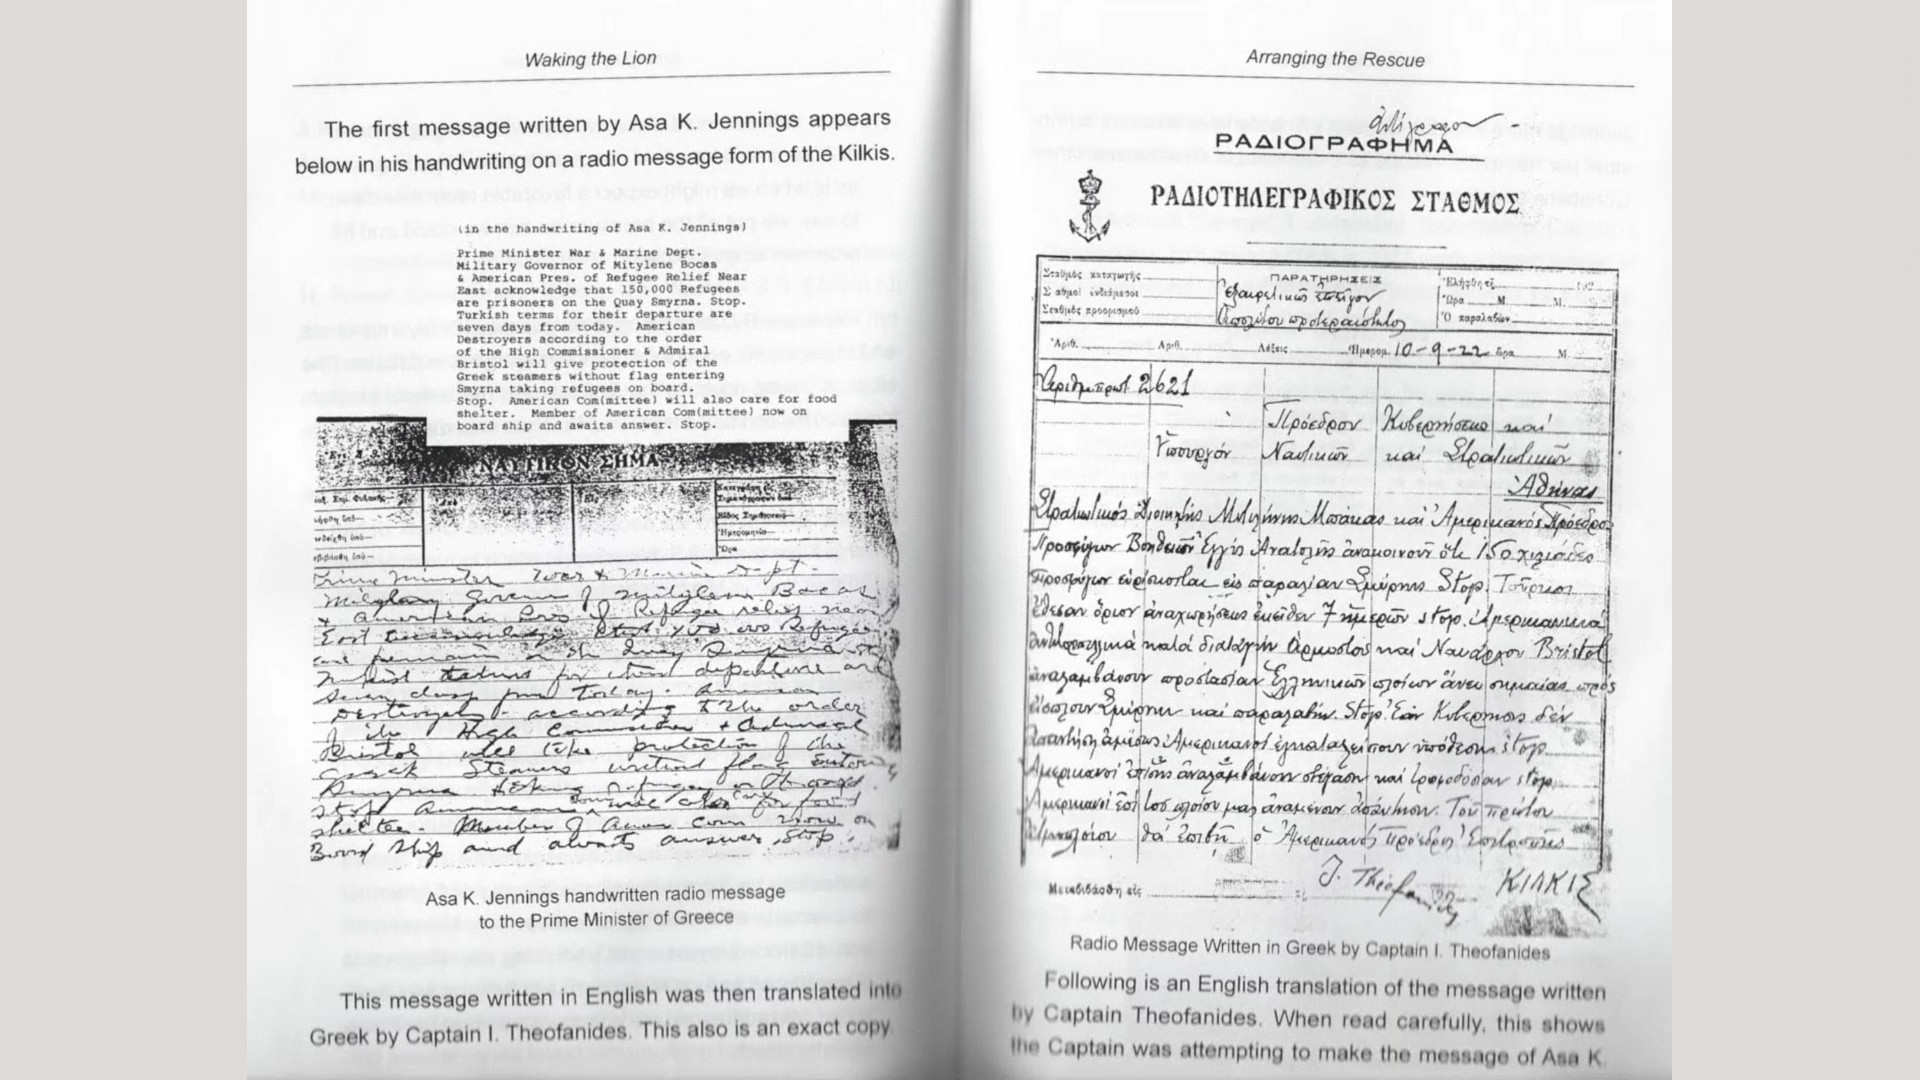 Waking the Lion
The first message written by Asa K. Jennings appears
below in his handwriting on a radio message form of the Kilkis.
(in the handwriting of Asa K. Jennings)
Prime Minister War & Marine Dept.
Military Governor of Mitylene Bocas
& American Pres. of Refugee Relief Near
East acknowledge that 150,000 Refugees
are prisoners on the Quay Smyrna. Stop.
Turkish terms for their departure are
seven days from today. American
Destroyers according to the order
of the High Commissioner & Admiral
Bristol will give protection of the
Greek steamers without flag entering
Smyrna taking refugees on board.
Stop. American Com(mittee) will also care for food
shelter. Member of American Com(mittee) now on
board ship and awaits answer. Stop.
ΝΑΥΤΙΚΟΝ ΣΗΜΑ
Prime Minister War & Marine Dept.
Military Govern of Mitylene Bocas
& American Pres. of Refugee relief near
East
are
seven days from today. American
Destroyers according to the order
of the High Commissioner & Admiral
Bristol will protection of the
Greek Steamers without flag
Smyrna
Stop American
shelter. Member of Amer Com now on
Board ship and awaits answer. Stop.
Asa K. Jennings handwritten radio message
to the Prime Minister of Greece
This message written in English was then translated into
Greek by Captain I. Theofanides. This also is an exact copy.
Arranging the Rescue
ΡΑΔΙΟΓΡΑΦΗΜΑ
ΡΑΔΙΟΤΗΛΕΓΡΑΦΙΚΟΣ ΣΤΑΘΜΟΣ
Σταθμὸς καταγωγῆς ΠΑΡΑΤΗΡΗΣΕΙΣ
Σταθμὸς προορισμοῦ Ὁ παραλαβών
Ἀριθ. Ἀριθ. Λέξεις Ἡμερομ. 10-9-22 ὥρα Μ.
2621
Πρόεδρον Κυβερνήσεως καὶ
Ὑπουργόν Ναυτικῶν καὶ Στρατιωτικῶν
Ἀθήνας
Στρατιωτικός Διοικητής Μυτιλήνης Μπάκας καὶ Ἀμερικανός Πρόεδρος
Προσφύγων Ἐγγύς Ἀνατολῆς ἀνακοινοῦν ὅτι 150 χιλιάδες
προσφύγων εὑρίσκονται εἰς παραλίαν Σμύρνης Stop. Τοῦρκοι
ἔθεσαν ὅριον ἀναχωρήσεως ἐκεῖθεν 7 ἡμερῶν stop. Ἀμερικανικά
ἀντιτορπιλλικά κατά διαταγήν Ἁρμοστοῦ καὶ Ναυάρχου Bristol
ἀναλαμβάνουν προστασίαν Ἑλληνικῶν πλοίων ἄνευ σημαίας πρός
Σμύρνην καὶ παραλαβήν. Stop. Ἐάν Κυβέρνησις δέν
ἀμέσως Ἀμερικανοί ἐγκαταλείπουν ὑπόθεσιν stop.
Ἀμερικανοί ἐπίσης ἀναλαμβάνουν στέγασιν καὶ τροφοδοσίαν stop.
Ἀμερικανοί ἐπί τοῦ πλοίου μας ἀναμένουν ἀπάντησιν. Τοῦ πρώτου
θά ἐπιβῇ ὁ Ἀμερικανός Πρόεδρος Ἐπιτροπῆς
Μετεβιβάσθη εἰς
Ι. Theofanides ΚΙΛΚΙΣ
Radio Message Written in Greek by Captain I. Theofanides
Following is an English translation of the message written
by Captain Theofanides. When read carefully, this shows
the Captain was attempting to make the message of Asa K.